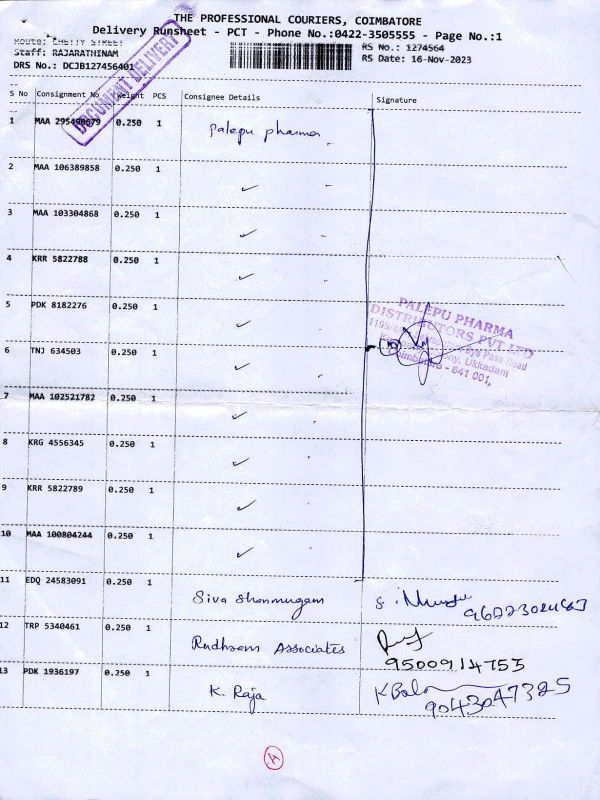 THE PROFESSIONAL COURIERS, COIMBATORE
Delivery Runsheet - PCT - Phone No.:0422-3505555 - Page No.:1
Route: CHETTY STREET
RS No.: 1274564
Staff: RAJARATHINAM
RS Date: 16-Nov-2023
DRS No.: DCJB127456401
DOCUMENT DELIVERY
S No Consignment No Weight PCS Consignee Details Signature
1 MAA 295490079 0.250 1 Palepu pharma
2 MAA 106389858 0.250 1 ✓
3 MAA 103304868 0.250 1 ✓
4 KRR 5822788 0.250 1 ✓
5 PDK 8182276 0.250 1 ✓
PALEPU PHARMA
DISTRIBUTORS PVT LTD
Bye Pass Road
Ukkadam
Coimbatore - 641 001.
6 TNJ 634503 0.250 1 ✓
7 MAA 102521782 0.250 1 ✓
8 KRG 4556345 0.250 1 ✓
9 KRR 5822789 0.250 1 ✓
10 MAA 100804244 0.250 1 ✓
11 EDQ 24583091 0.250 1 Siva Shanmugam
12 TRP 5340461 0.250 1 Rudhram Associates
9500914753
13 PDK 1936197 0.250 1 K. Raja K Bala
9043047325